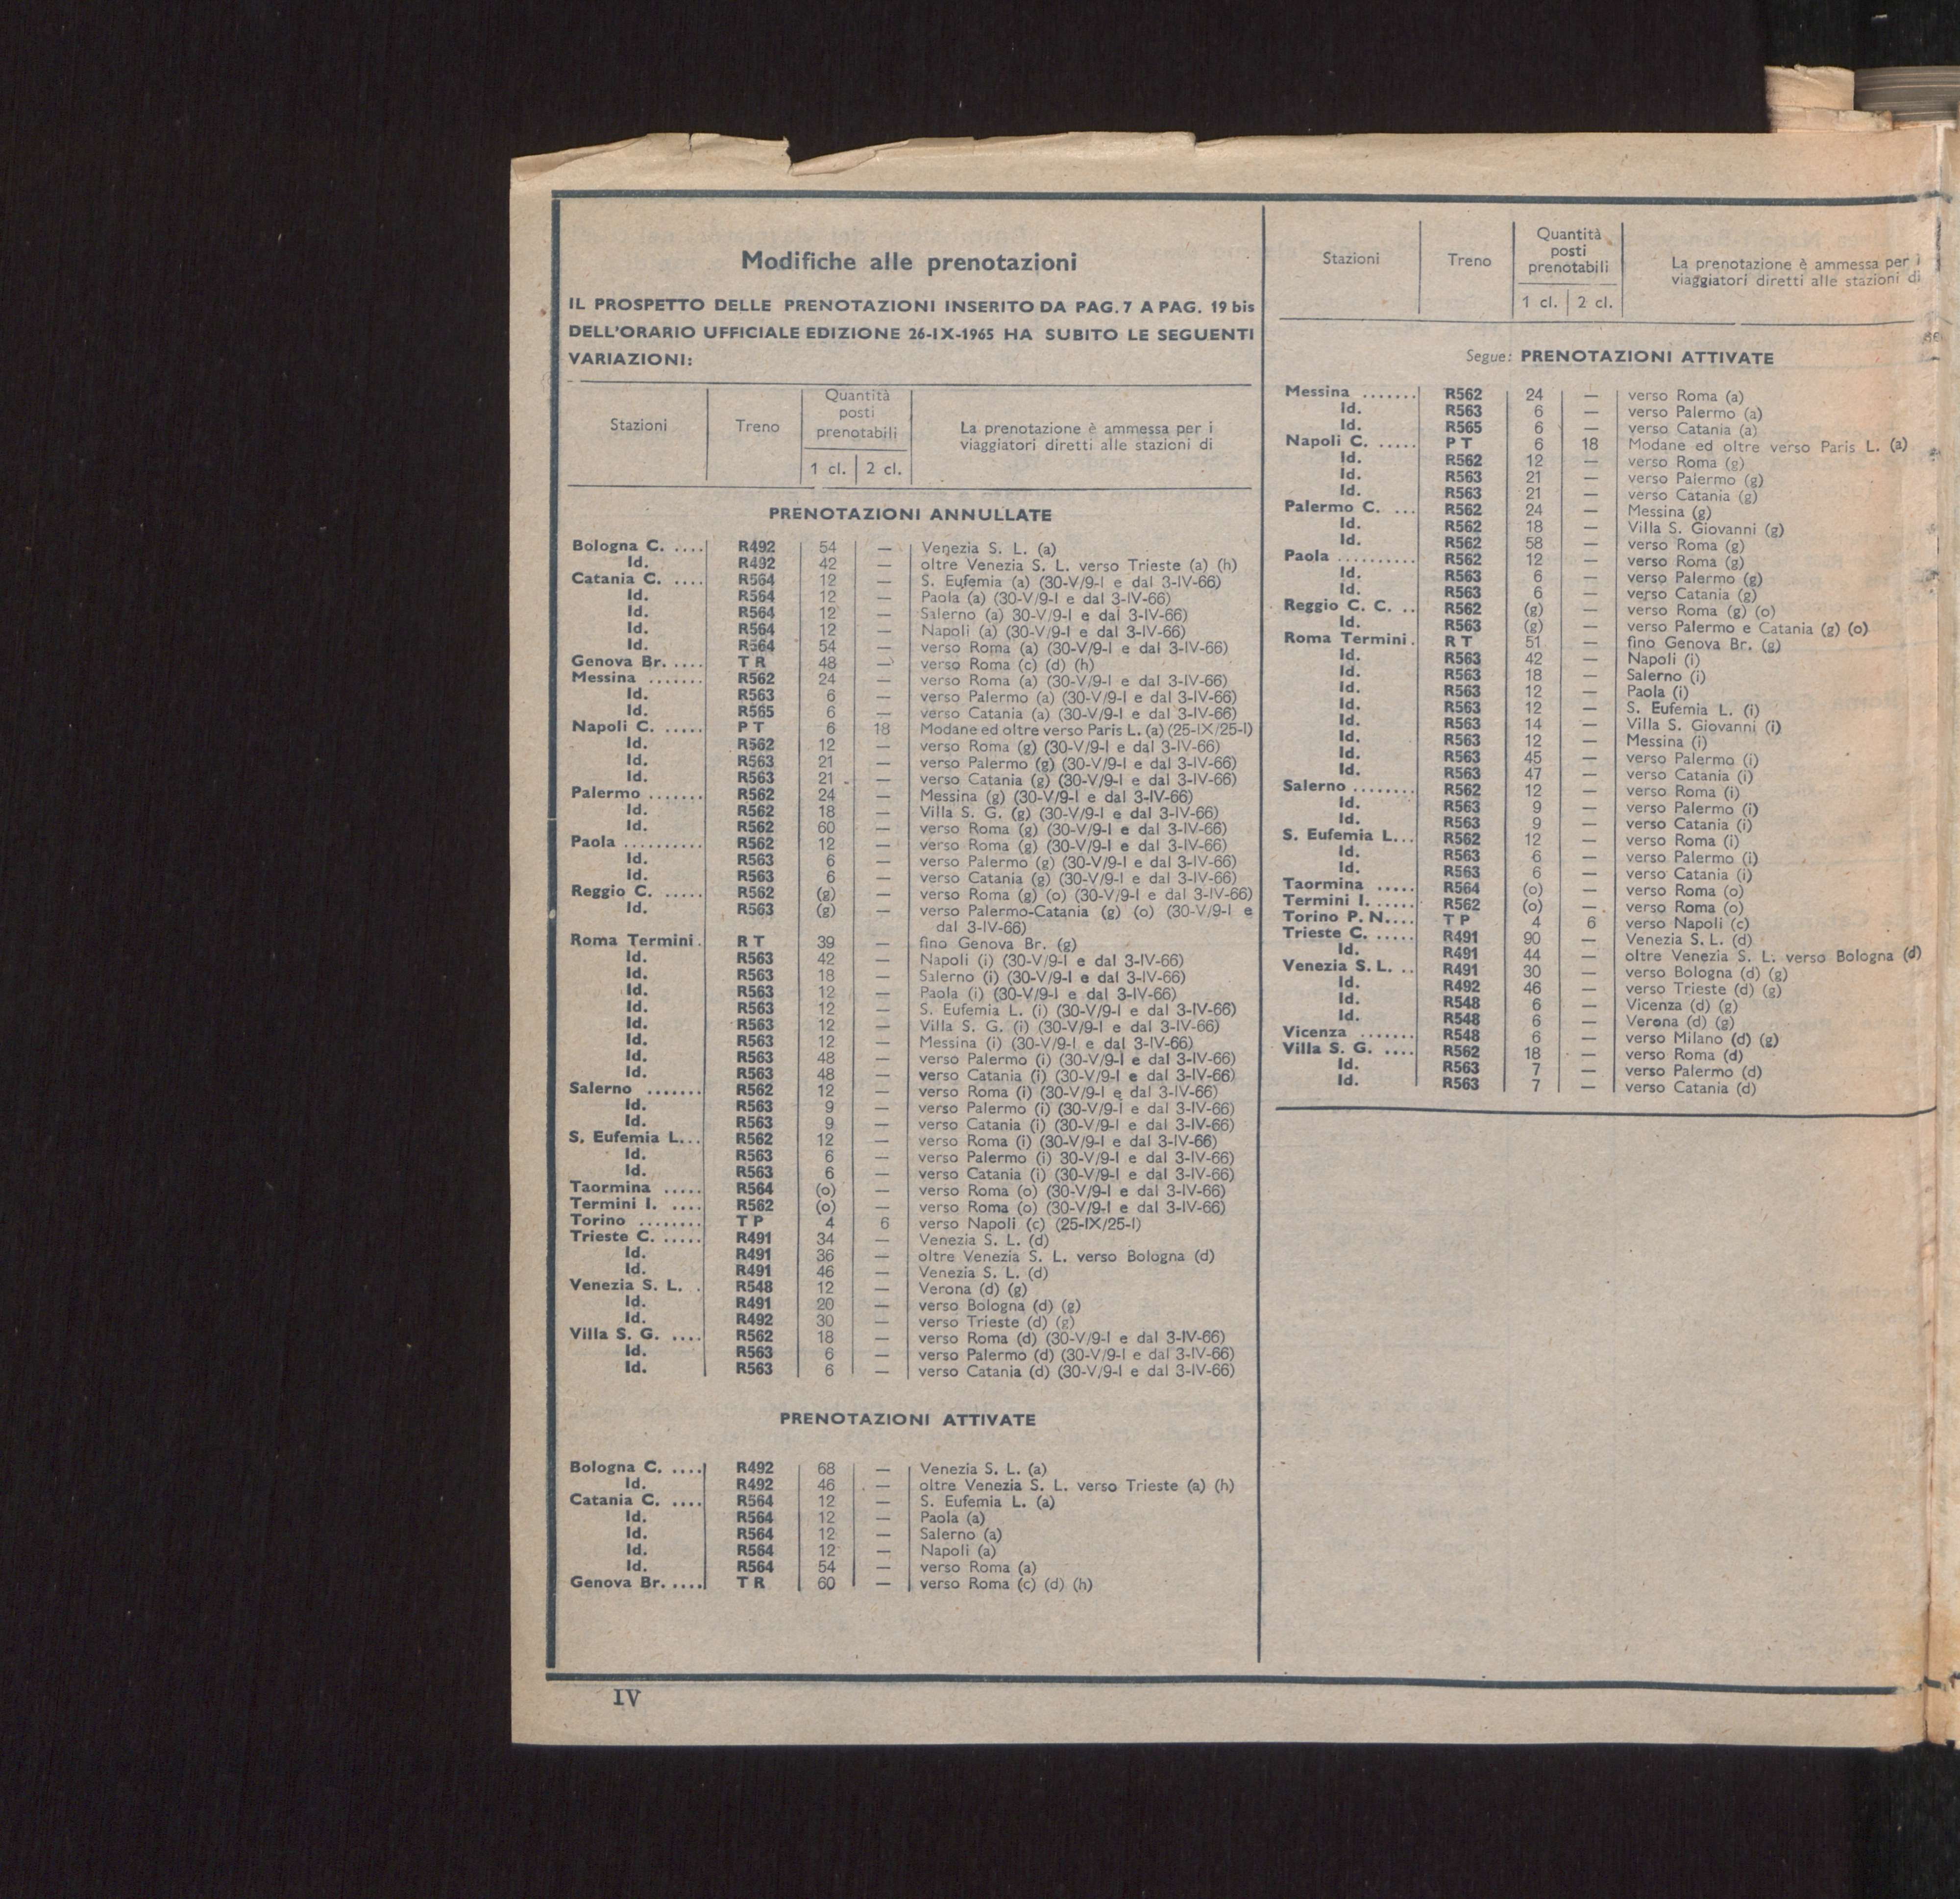 Modifiche alle prenotazioni
IL PROSPETTO DELLE PRENOTAZIONI INSERITO DA PAG. 7 A PAG. 19 bis
DELL'ORARIO UFFICIALE EDIZIONE 26-IX-1965 HA SUBITO LE SEGUENTI
VARIAZIONI:
Stazioni Treno Quantità posti prenotabili 1 cl. 2 cl. La prenotazione è ammessa per i viaggiatori diretti alle stazioni di
PRENOTAZIONI ANNULLATE
Bologna C. .... R492 54 — Venezia S. L. (a)
Id. R492 42 — oltre Venezia S. L. verso Trieste (a) (h)
Catania C. .... R564 12 — S. Eufemia (a) (30-V/9-I e dal 3-IV-66)
Id. R564 12 — Paola (a) (30-V/9-I e dal 3-IV-66)
Id. R564 12 — Salerno (a) 30-V/9-I e dal 3-IV-66)
Id. R564 12 — Napoli (a) (30-V/9-I e dal 3-IV-66)
Id. R564 54 — verso Roma (a) (30-V/9-I e dal 3-IV-66)
Genova Br. .... T R 48 — verso Roma (c) (d) (h)
Messina ....... R562 24 — verso Roma (a) (30-V/9-I e dal 3-IV-66)
Id. R563 6 — verso Palermo (a) (30-V/9-I e dal 3-IV-66)
Id. R565 6 — verso Catania (a) (30-V/9-I e dal 3-IV-66)
Napoli C. ..... P T 6 18 Modane ed oltre verso Paris L. (a) (25-IX/25-I)
Id. R562 12 — verso Roma (g) (30-V/9-I e dal 3-IV-66)
Id. R563 21 — verso Palermo (g) (30-V/9-I e dal 3-IV-66)
Id. R563 21 — verso Catania (g) (30-V/9-I e dal 3-IV-66)
Palermo ....... R562 24 — Messina (g) (30-V/9-I e dal 3-IV-66)
Id. R562 18 — Villa S. G. (g) (30-V/9-I e dal 3-IV-66)
Id. R562 60 — verso Roma (g) (30-V/9-I e dal 3-IV-66)
Paola .......... R562 12 — verso Roma (g) (30-V/9-I e dal 3-IV-66)
Id. R563 6 — verso Palermo (g) (30-V/9-I e dal 3-IV-66)
Id. R563 6 — verso Catania (g) (30-V/9-I e dal 3-IV-66)
Reggio C. ..... R562 (g) — verso Roma (g) (o) (30-V/9-I e dal 3-IV-66)
Id. R563 (g) — verso Palermo-Catania (g) (o) (30-V/9-I e
dal 3-IV-66)
Roma Termini. R T 39 — fino Genova Br. (g)
Id. R563 42 — Napoli (i) (30-V/9-I e dal 3-IV-66)
Id. R563 18 — Salerno (i) (30-V/9-I e dal 3-IV-66)
Id. R563 12 — Paola (i) (30-V/9-I e dal 3-IV-66)
Id. R563 12 — S. Eufemia L. (i) (30-V/9-I e dal 3-IV-66)
Id. R563 12 — Villa S. G. (i) (30-V/9-I e dal 3-IV-66)
Id. R563 12 — Messina (i) (30-V/9-I e dal 3-IV-66)
Id. R563 48 — verso Palermo (i) (30-V/9-I e dal 3-IV-66)
Id. R563 48 — verso Catania (i) (30-V/9-I e dal 3-IV-66)
Salerno ....... R562 12 — verso Roma (i) (30-V/9-I e dal 3-IV-66)
Id. R563 9 — verso Palermo (i) (30-V/9-I e dal 3-IV-66)
Id. R563 9 — verso Catania (i) (30-V/9-I e dal 3-IV-66)
S. Eufemia L... R562 12 — verso Roma (i) (30-V/9-I e dal 3-IV-66)
Id. R563 6 — verso Palermo (i) 30-V/9-I e dal 3-IV-66)
Id. R563 6 — verso Catania (i) (30-V/9-I e dal 3-IV-66)
Taormina ..... R564 (o) — verso Roma (o) (30-V/9-I e dal 3-IV-66)
Termini I. .... R562 (o) — verso Roma (o) (30-V/9-I e dal 3-IV-66)
Torino ........ T P 4 6 verso Napoli (c) (25-IX/25-I)
Trieste C. ..... R491 34 — Venezia S. L. (d)
Id. R491 36 — oltre Venezia S. L. verso Bologna (d)
Id. R491 46 — Venezia S. L. (d)
Venezia S. L. . R548 12 — Verona (d) (g)
Id. R491 20 — verso Bologna (d) (g)
Id. R492 30 — verso Trieste (d) (g)
Villa S. G. .... R562 18 — verso Roma (d) (30-V/9-I e dal 3-IV-66)
Id. R563 6 — verso Palermo (d) (30-V/9-I e dal 3-IV-66)
Id. R563 6 — verso Catania (d) (30-V/9-I e dal 3-IV-66)
PRENOTAZIONI ATTIVATE
Bologna C. .... R492 68 — Venezia S. L. (a)
Id. R492 46 — oltre Venezia S. L. verso Trieste (a) (h)
Catania C. .... R564 12 — S. Eufemia L. (a)
Id. R564 12 — Paola (a)
Id. R564 12 — Salerno (a)
Id. R564 12 — Napoli (a)
Id. R564 54 — verso Roma (a)
Genova Br. .... T R 60 — verso Roma (c) (d) (h)
IV
Stazioni Treno Quantità posti prenotabili 1 cl. 2 cl. La prenotazione è ammessa per i viaggiatori diretti alle stazioni di
Segue: PRENOTAZIONI ATTIVATE
Messina ....... R562 24 — verso Roma (a)
Id. R563 6 — verso Palermo (a)
Id. R565 6 — verso Catania (a)
Napoli C. ..... P T 6 18 Modane ed oltre verso Paris L. (a)
Id. R562 12 — verso Roma (g)
Id. R563 21 — verso Palermo (g)
Id. R563 21 — verso Catania (g)
Palermo C. ... R562 24 — Messina (g)
Id. R562 18 — Villa S. Giovanni (g)
Id. R562 58 — verso Roma (g)
Paola .......... R562 12 — verso Roma (g)
Id. R563 6 — verso Palermo (g)
Id. R563 6 — verso Catania (g)
Reggio C. C. .. R562 (g) — verso Roma (g) (o)
Id. R563 (g) — verso Palermo e Catania (g) (o)
Roma Termini. R T 51 — fino Genova Br. (g)
Id. R563 42 — Napoli (i)
Id. R563 18 — Salerno (i)
Id. R563 12 — Paola (i)
Id. R563 12 — S. Eufemia L. (i)
Id. R563 14 — Villa S. Giovanni (i)
Id. R563 12 — Messina (i)
Id. R563 45 — verso Palermo (i)
Id. R563 47 — verso Catania (i)
Salerno ........ R562 12 — verso Roma (i)
Id. R563 9 — verso Palermo (i)
Id. R563 9 — verso Catania (i)
S. Eufemia L... R562 12 — verso Roma (i)
Id. R563 6 — verso Palermo (i)
Id. R563 6 — verso Catania (i)
Taormina ..... R564 (o) — verso Roma (o)
Termini I. ..... R562 (o) — verso Roma (o)
Torino P. N.... T P 4 6 verso Napoli (c)
Trieste C. ..... R491 90 — Venezia S. L. (d)
Id. R491 44 — oltre Venezia S. L. verso Bologna (d)
Venezia S. L. .. R491 30 — verso Bologna (d) (g)
Id. R492 46 — verso Trieste (d) (g)
Id. R548 6 — Vicenza (d) (g)
Id. R548 6 — Verona (d) (g)
Vicenza ...... R548 6 — verso Milano (d) (g)
Villa S. G. .... R562 18 — verso Roma (d)
Id. R563 7 — verso Palermo (d)
Id. R563 7 — verso Catania (d)